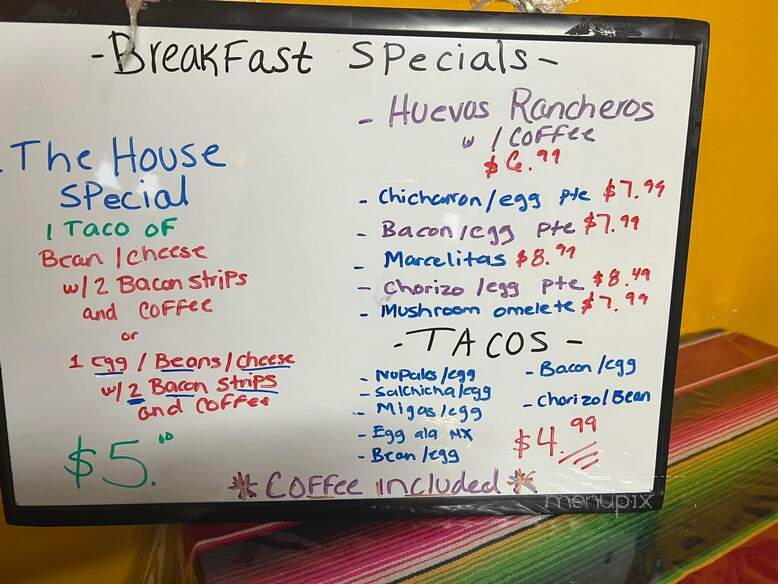 -Breakfast Specials-
The House
Special
1 Taco of
Bean/cheese
w/2 Bacon strips
and coffee
or
1 egg/Beans/cheese
w/2 Bacon strips
and coffee
$5.00
- Huevos Rancheros
w/coffee
$6.99
- Chicharron/egg pte $7.99
- Bacon/egg pte $7.99
- Marcelitas $8.99
- Chorizo/egg pte $8.49
- Mushroom omelete $7.99
-TACOS-
- Nopales/egg
- Salchicha/egg
- Migas/egg
- Egg ala MX
- Bean/egg
- Bacon/egg
- Chorizo/Bean
$4.99
* Coffee included *
menupix